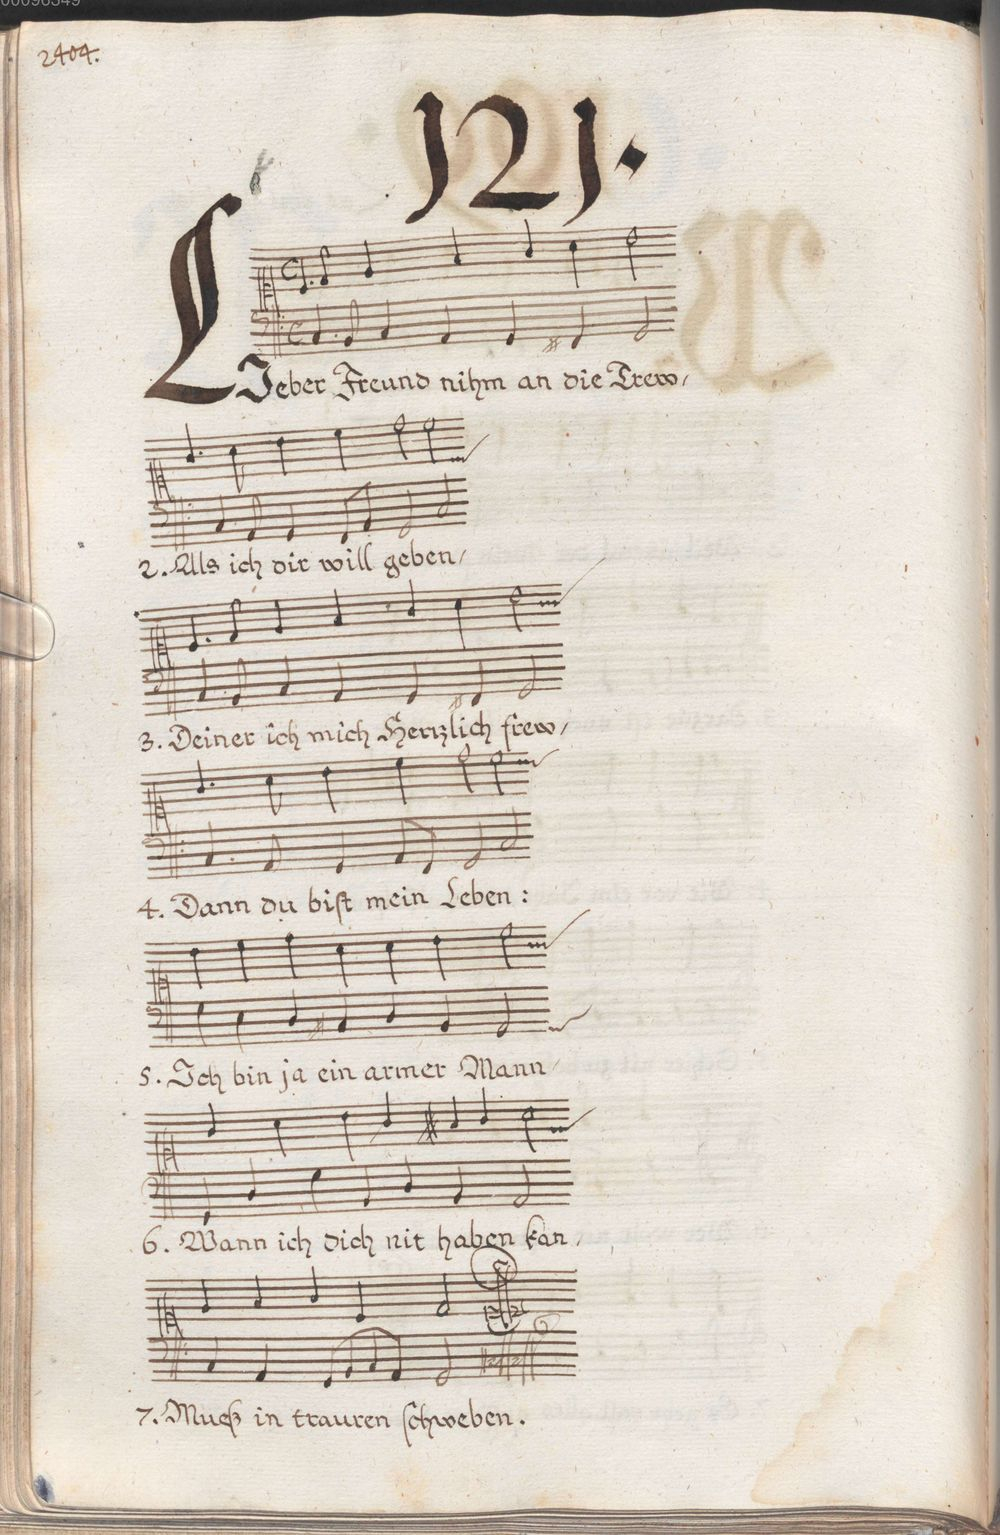 2404.
121.
LJeber Freund nihm an die Trew,
2. Als ich dir will geben,
3. Deiner ich mich Hertzlich frew,
4. Dann du bist mein Leben:
5. Ich bin ja ein armer Mann
6. Wann ich dich nit haben kan,
7. Mueß in trauren schweben.